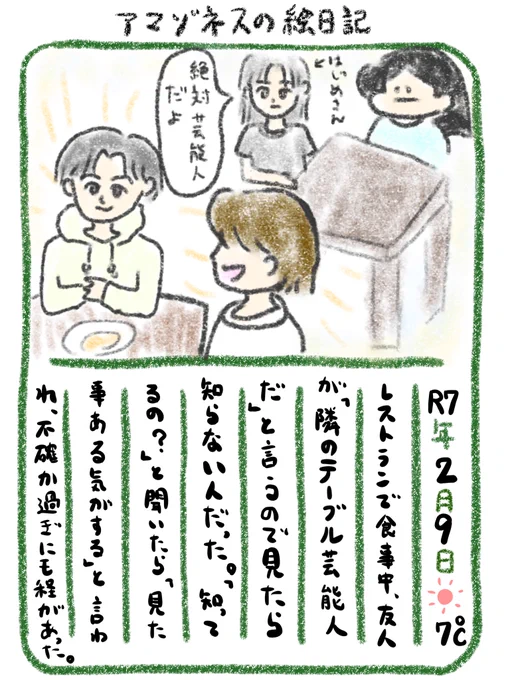 アマゾネスの絵日記
絶対芸能人
だよ
はじめさん
R7年2月9日 7℃
レストランで食事中、友人
が「隣のテーブル芸能人
だ」と言うので見たら
知らない人だった。「知って
るの？」と聞いたら「見た
事ある気がする」と言わ
れ、不確か過ぎにも程があった。